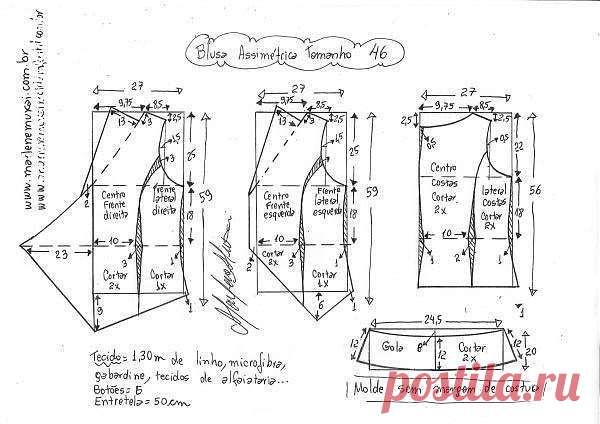 Blusa Assimétrica Tamanho 46
www.marlenemukai.com.br
27
9,75 8,5
13 3 2,5
1,5
3
25
59
Centro Frente direita
Frente lateral direita
2
18
10
23
3
1
Cortar 2x
Cortar 1x
9
1
27
9,75 8,5
13 3 2,5
1,5
3
25
59
Centro Frente esquerda
Frente lateral esquerda
18
10
2
3
1
Cortar 2x
Cortar 1x
6
1
27
9,75 8,5
2,5 2,5
0,5 0,5
22
56
Centro costas Cortar 2x
lateral Costas Cortar 2x
18
10
1 2 1
1
24,5
12 Gola 8 Cortar 2x 12 20
12
Tecido: 1,30m de linho, microfibra,
gabardine, tecidos de alfaiataria...
Botões = 5
Entretela = 50cm
Molde sem margem de costura
postila.ru